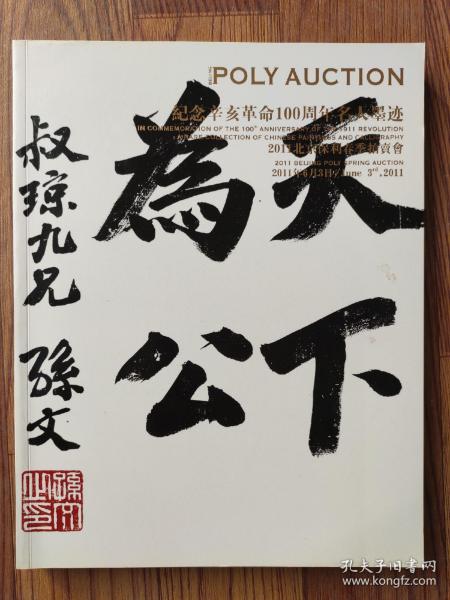 POLY AUCTION
紀念辛亥革命100周年名人墨迹
IN COMMEMORATION OF THE 100th ANNIVERSARY OF THE 1911 REVOLUTION
COLLECTION OF CHINESE PAINTINGS AND CALLIGRAPHY
2011北京保利春季拍賣會
2011 BEIJING POLY SPRING AUCTION
2011年6月3日/June 3rd,2011
天下
為公
叔琼九兄
孫文
孫文之印
孔夫子旧书网
www.kongfz.com